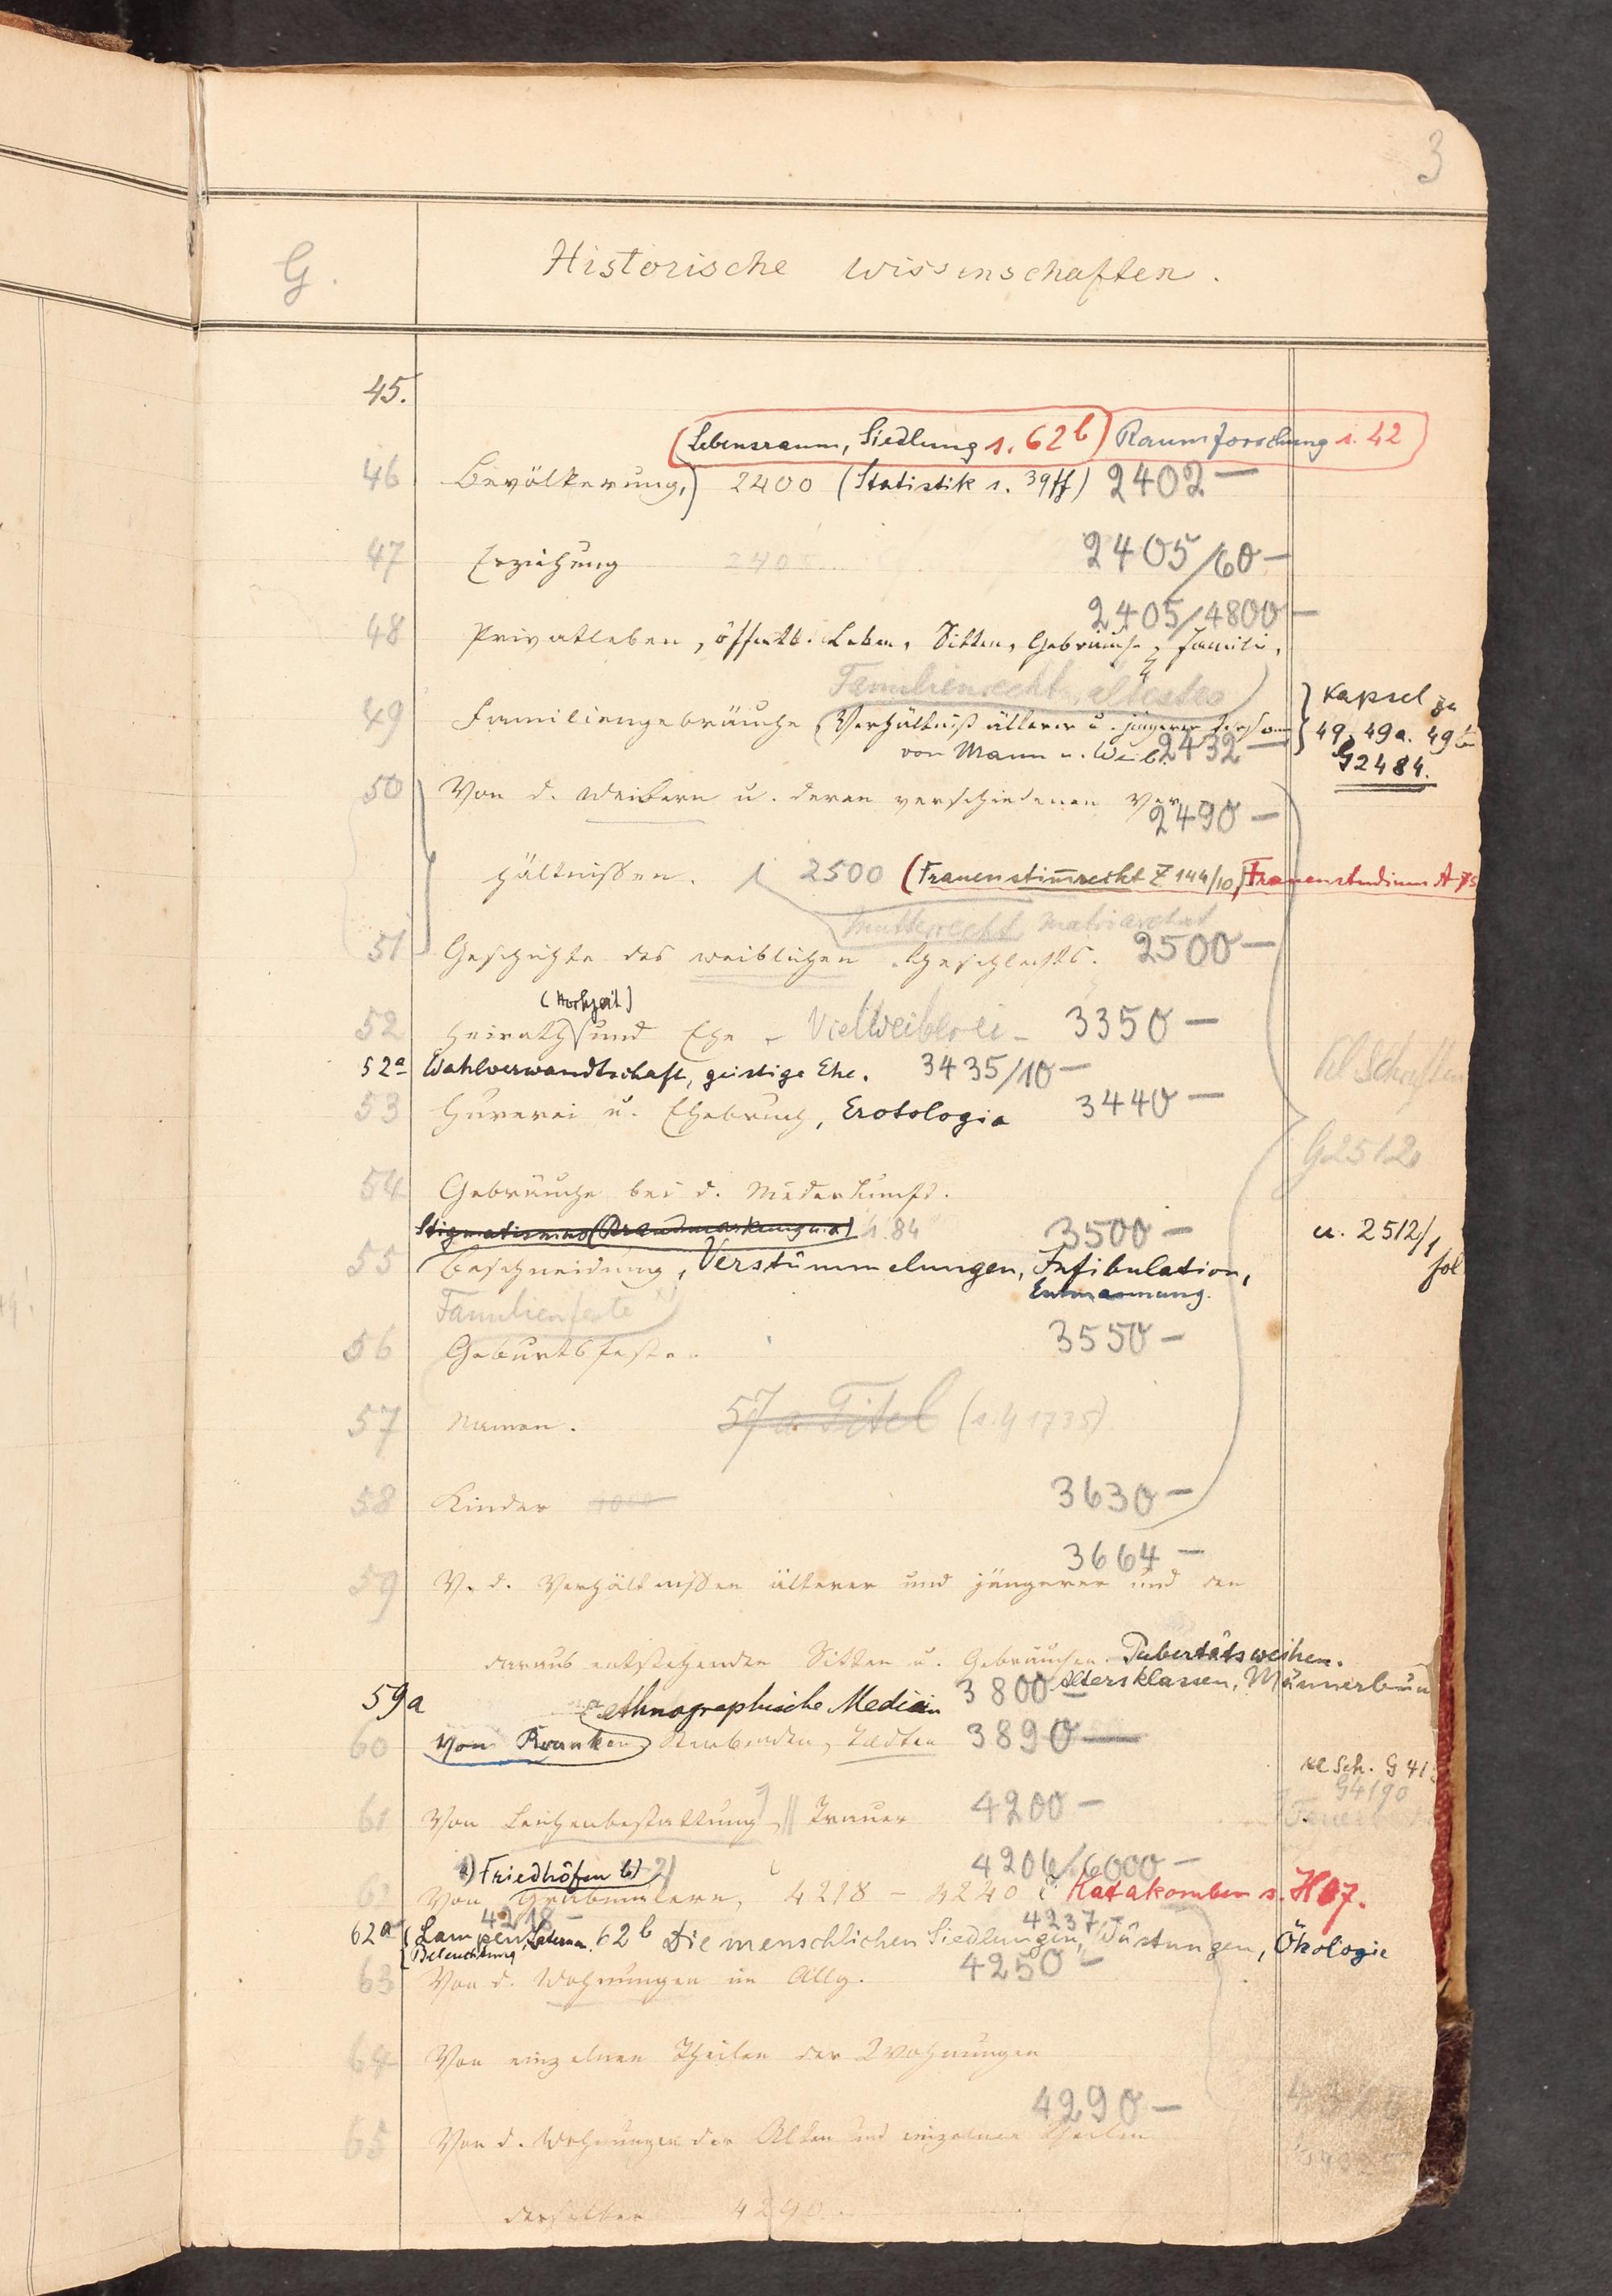 3
G. Historische Wissenschaften.
45.
(Lebensraum, Siedlung s. 62b) Raumforschung s. 42
46 Bevölkerung,) 2400 (Statistik s. 39ff) 2402 —
47 Erziehung 2405/60 —
2405/4800 —
48 Privatleben, öffentl. Leben, Sitten, Gebräuche, Familie.
Familienrecht, ältestes
49 Familiengebräuche (Verhältniß älterer u. jüngerer Personen
von Mann u. Weib. 2432 —
Kapsel zu
49. 49a. 49
G 2484.
50 Von d. Weibern u. deren verschiedenen Ver
2490 —
hältnißen. 2500 (Frauenstim̄recht Z 144/10) Frauenstudium A 75
Mutterrecht, Matriarchat
51 Geschichte des weiblichen Geschlechts. 2500 —
(Hochzeit)
52 Heirath und Ehe – Vielweiberei – 3350 —
52a Wahlverwandtschaft, geistige Ehe. 3435/10 —
Kl Schriften
53 Hurerei u. Ehebruch, Erotologia 3440 —
G 2512
54 Gebräuche bei d. Niederkunft.
Stigmatismus (Brandmarkung u.a.) s. 84 3500 —
u. 2512/1 fol
55 Beschneidung, Verstümmelungen, Infibulation,
Entmannung.
Familienfeste
56 Geburtsfeste. 3550 —
57 Namen. 57a Titel (s. G 1735)
58 Kinder 3630 —
3664 —
59 V. d. Verhältnißen älterer und jüngerer und den
daraus entstehenden Sitten u. Gebräuchen Pubertätsweihen.
Altersklassen, Männerbün
59a ethnographische Medicin 3800 —
60 Von Kranken, Sterbenden, Todten 3890 —
kl Sch. G 41
G 4190
61 Von Leichenbestattung, Trauer 4200 —
a) Friedhöfen b) 4206/6000 —
62 Von Grabmälern, 4218 – 4240 Katakomben s. H 07.
4218 — 4237 —
62a (Lampen, Laternen, 62b Die menschlichen Siedlungen, Wüstungen, Ökologie
Beleuchtung
63 Von d. Wohnungen im Allg. 4250 —
64 Von einzelnen Theilen der Wohnungen
4290 —
65 Von d. Wohnungen der Alten und einzelnen Theilen
derselben 4290.